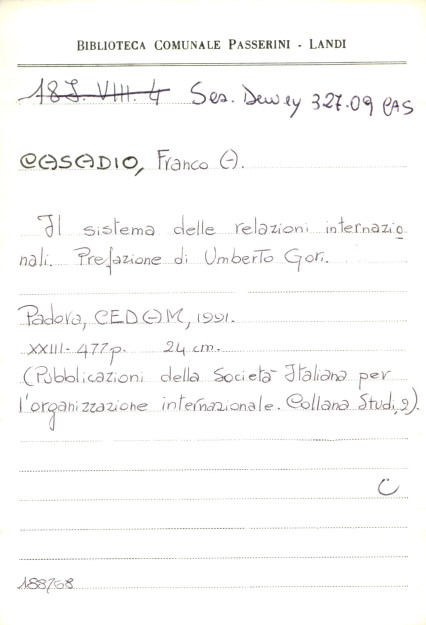 BIBLIOTECA COMUNALE PASSERINI - LANDI
18J. VIII. 4 Ses. Dewey 327.09 CAS
CASADIO, Franco A.
Il sistema delle relazioni internazio
nali. Prefazione di Umberto Gori.
Padova, CEDAM, 1991.
XXIII- 477p. 24 cm.
(Pubblicazioni della Società Italiana per
l'organizzazione internazionale. Collana Studi, 2).
C
188768